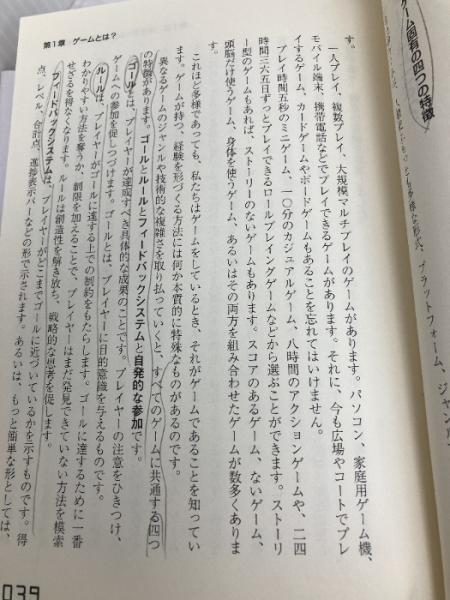 ゲーム固有の四つの特徴
プラットフォーム、ジャンル
す。
一人プレイ、複数プレイ、大規模マルチプレイのゲームがあります。パソコン、家庭用ゲーム機、
モバイル端末、携帯電話などでプレイできるゲームがあります。それに、今も広場やコートでプレ
イするゲーム、カードゲームやボードゲームもあることを忘れてはいけません。
プレイ時間五秒のミニゲーム、一〇分のカジュアルゲーム、八時間のアクションゲームや、二四
時間三六五日ずっとプレイできるロールプレイングゲームなどから選ぶことができます。ストーリ
ー型のゲームもあれば、ストーリーのないゲームもあります。スコアのあるゲーム、ないゲーム、
頭脳だけ使うゲーム、身体を使うゲーム、あるいはその両方を組み合わせたゲームが数多くありま
す。
これほど多様であっても、私たちはゲームをしているとき、それがゲームであることを知ってい
ます。ゲームが持つ、経験を形づくる方法には何か本質的に特殊なものがあるのです。
異なるゲームのジャンルや技術的な複雑さを取り払っていくと、すべてのゲームに共通する四つ
の特徴があります。ゴールとルールとフィードバックシステムと自発的な参加です。
ゴールとは、プレイヤーが達成すべき具体的な成果のことです。プレイヤーの注意をひきつけ、
ゲームへの参加を促しつづけます。ゴールとは、プレイヤーに目的意識を与えるものです。
ルールは、プレイヤーがゴールに達する上での制約をもたらします。ゴールに達するために一番
わかりやすい方法を奪うか、制限を加えることで、プレイヤーはまだ発見できていない方法を模索
せざるを得なくなります。ルールは創造性を解き放ち、戦略的な思考を促します。
フィードバックシステムは、プレイヤーがどこまでゴールに近づいているかを示すものです。得
点、レベル、合計点、進捗表示バーなどの形で示されます。あるいは、もっと簡単な形としては、
第1章 ゲームとは？
039